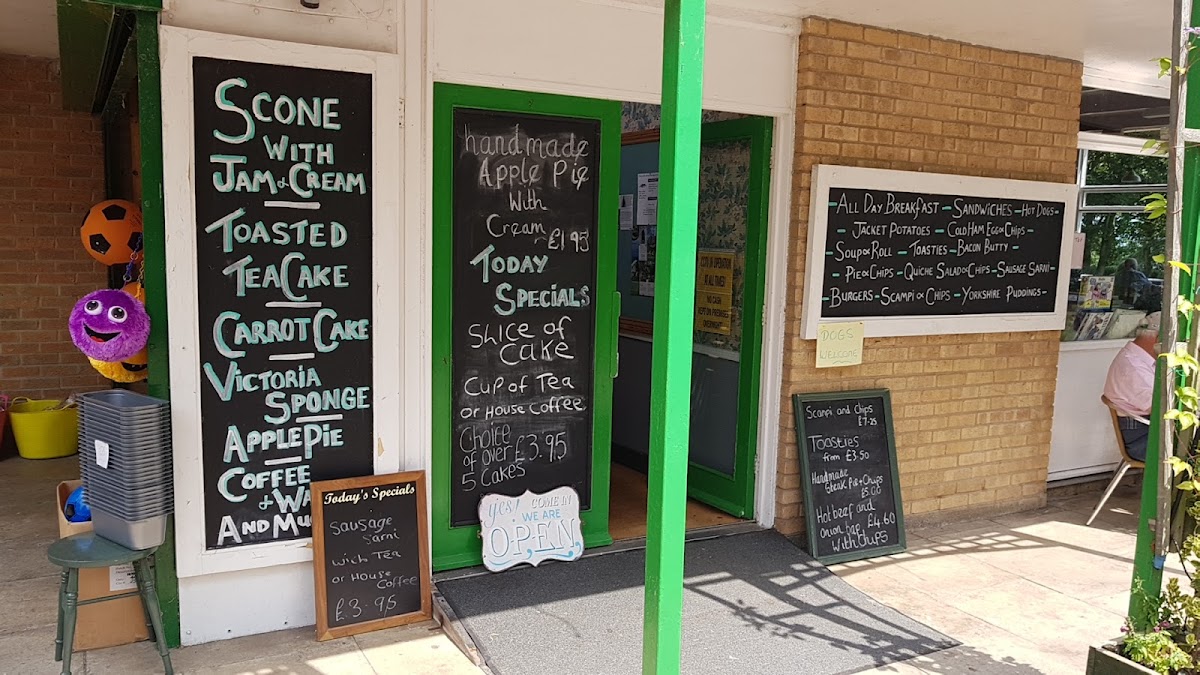 SCONE
WITH
JAM & CREAM
TOASTED
TEACAKE
CARROT CAKE
VICTORIA
SPONGE
APPLE PIE
COFFEE
& WA
AND MU
Today's Specials
Sausage
Sarni
with Tea
or House
Coffee
£3.95
handmade
Apple Pie
With
Cream £1.95
TODAY
SPECIALS
Slice of
Cake
Cup of Tea
or House Coffee
Choice
of over £3.95
5 Cakes
YES! COME IN
WE ARE
OPEN
IN OPERATION
AT ALL TIMES
NO CASH
KEPT ON PREMISES
OVERNIGHT
ALL DAY BREAKFAST - SANDWICHES - HOT DOGS -
- JACKET POTATOES - COLD HAM EGG & CHIPS -
SOUP & ROLL - TOASTIES - BACON BUTTY -
- PIE & CHIPS - QUICHE SALAD & CHIPS - SAUSAGE SARNI -
- BURGERS - SCAMPI & CHIPS - YORKSHIRE PUDDINGS -
DOGS
WELCOME
Scampi and Chips
£7.25
Toasties
from £3.50
Handmade
Steak Pie + Chips
£5.00
Hot beef and
onion bap £4.60
With Chips